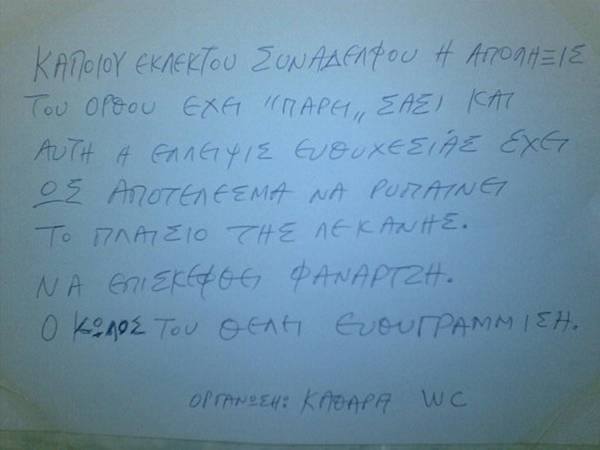 ΚΑΠΟΙΟΥ ΕΚΛΕΚΤΟΥ ΣΥΝΑΔΕΛΦΟΥ Η ΑΠΟΛΗΞΙΣ
ΤΟΥ ΟΡΘΟΥ ΕΧΕΙ "ΠΑΡΕΙ" ΣΑΣΙ ΚΑΙ
ΑΥΤΗ Η ΕΛΛΕΙΨΙΣ ΕΥΘΥΧΕΣΙΑΣ ΕΧΕΙ
ΟΣ ΑΠΟΤΕΛΕΣΜΑ ΝΑ ΡΥΠΑΙΝΕΙ
ΤΟ ΠΛΑΙΣΙΟ ΤΗΣ ΛΕΚΑΝΗΣ.
ΝΑ ΕΠΙΣΚΕΦΘΕΙ ΦΑΝΑΡΤΖΗ.
Ο ΚΩΛΟΣ ΤΟΥ ΘΕΛΕΙ ΕΥΘΥΓΡΑΜΜΙΣΗ.
ΟΡΓΑΝΩΣΗ: ΚΑΘΑΡΑ WC